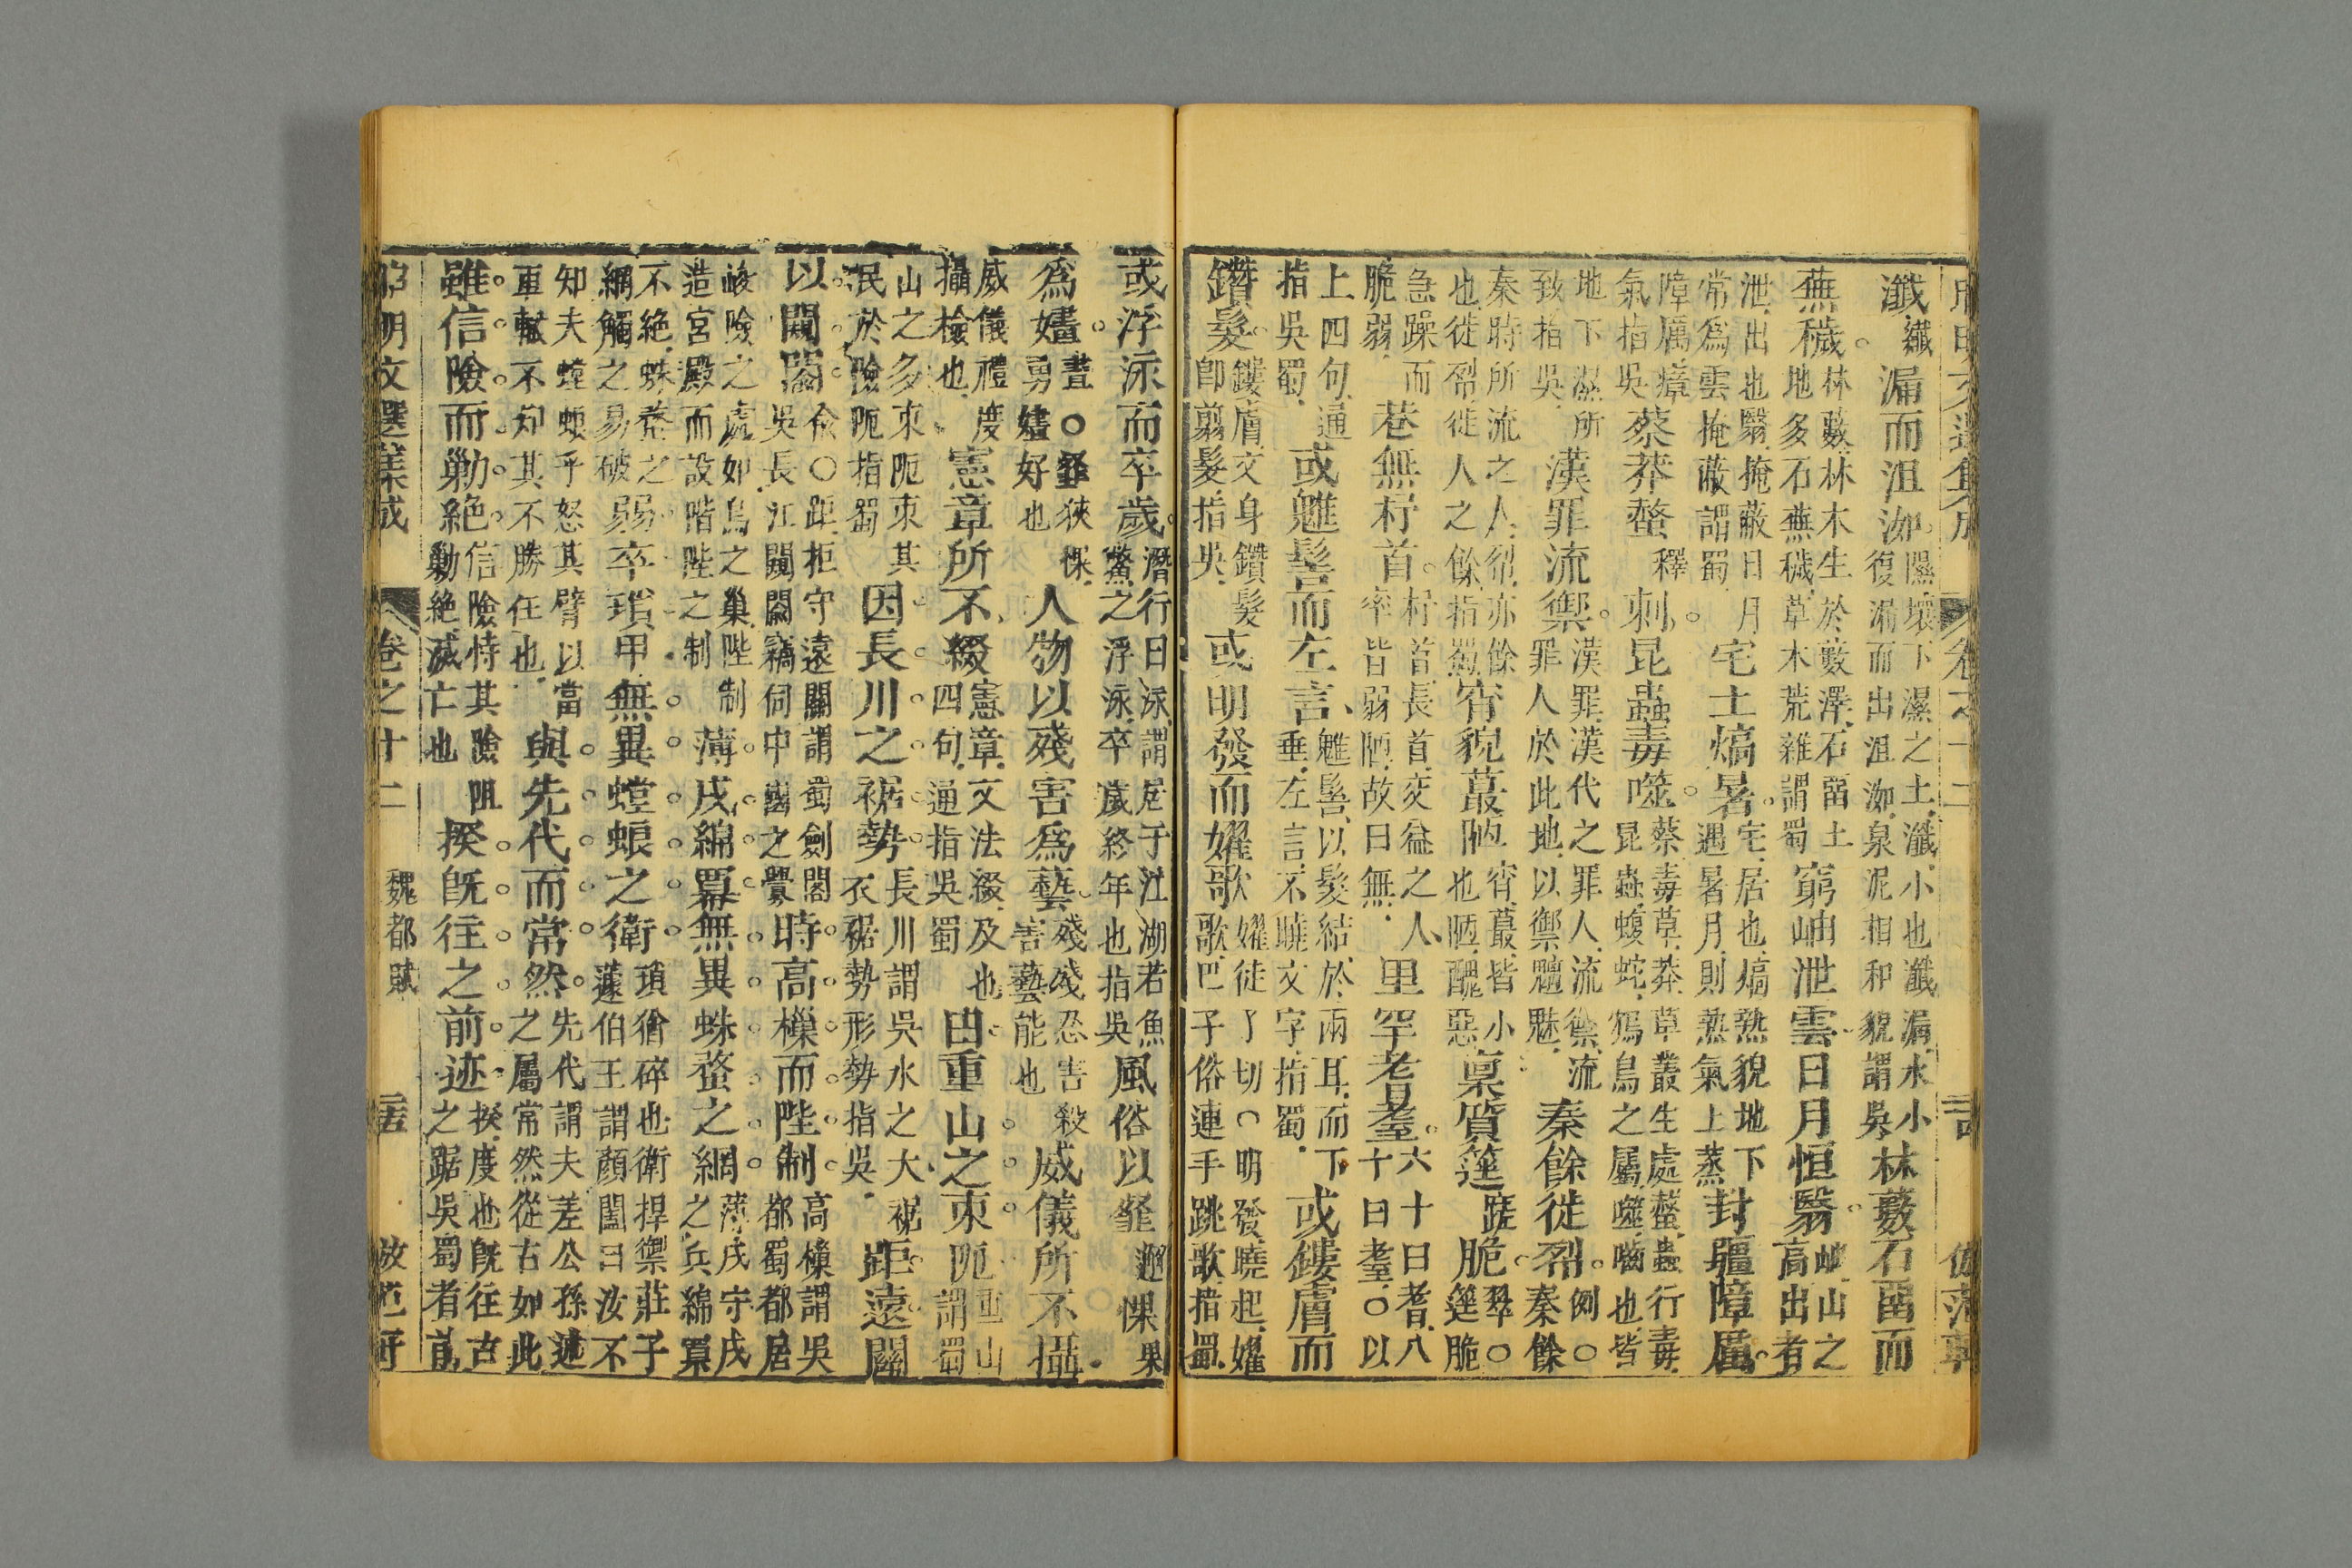 瀸纖漏而沮洳隰壤下濕之土瀸小也瀸漏水小復漏而出沮洳泉泥相和貌謂吳林藪石留而
蕪穢林藪林木生於藪澤石留土地多石蕪穢草木荒雜謂蜀窮岫泄雲日月恒翳岫山之高出者
泄出也翳掩蔽日月常為雲掩蔽謂蜀宅土熇暑宅居也熇熱貌地下遇暑月則熱氣上蒸封疆障厲
障厲瘴氣指吳蔡莽螫釋刺昆蟲毒噬蔡毒草莽草叢生處螫蟲行毒昆蟲蝮蛇鴆鳥之屬噬嚙也皆
地下濕所致指吳漢罪流禦漢罪漢代之罪人流禦流罪人於此地以禦魑魅秦餘徙𠛱例○秦餘
秦時所流之人𠛱亦餘也徙𠛱徙人之餘指蜀宵貌蕞陋宵蕞皆小也陋醜惡稟質遳蹉脆翠○遳脆
急躁而脆弱巷無杼首杼首長首交益之人率皆弱陋故曰無里罕耆耋六十曰耆八十曰耋○以
上四句通指吳蜀或魋髻而左言魋髻以髮結於兩耳而下垂左言不曉文字指蜀或鏤膚而
鑽髮鏤膚文身鑽髮卽剪髮指吳或明發而嬥歌嬥徒了切○明發曉起嬥歌巴子俗連手跳歌指蜀
或浮泳而卒歲潛行曰泳謂居于江湖若魚鱉之浮泳卒歲終年也指吳風俗以韰邂惈果
為嫿畫○韰狹惈勇嫿好也人物以殘害為藝殘殘忍害殺害藝能也威儀所不攝
威儀禮度攝檢也憲章所不綴憲章文法綴及也四句通指吳蜀由重山之束阨重山謂蜀
山之多束阨束其民於險阨指蜀因長川之裾勢長川謂吳水之大裾衣裾勢形勢指吳距遠關
以闚𨵦俞○距拒守遠關謂蜀劍閣吳長江闚𨵦竊伺中國之釁時高樔而陛制高樔謂吳都蜀都居
峻險之處如鳥之巢陛制造宮殿而設階陛之制薄戍綿冪無異蛛蝥之網薄戍守戍之兵綿冪
不絕蛛蝥之網觸之易破弱卒瑣甲無異螳蜋之衛瑣猶碎也衛捍禦莊子蘧伯玉謂顏闔曰汝不
知夫螳蜋乎怒其臂以當車轍不知其不勝任也與先代而常然先代謂夫差公孫述之屬常然從古如此
雖信險而勦絕信險恃其險阻勦絕滅亡也揆旣往之前迹揆度也旣往古之踞吳蜀者前
昭明文選集成 卷之十二 魏都賦